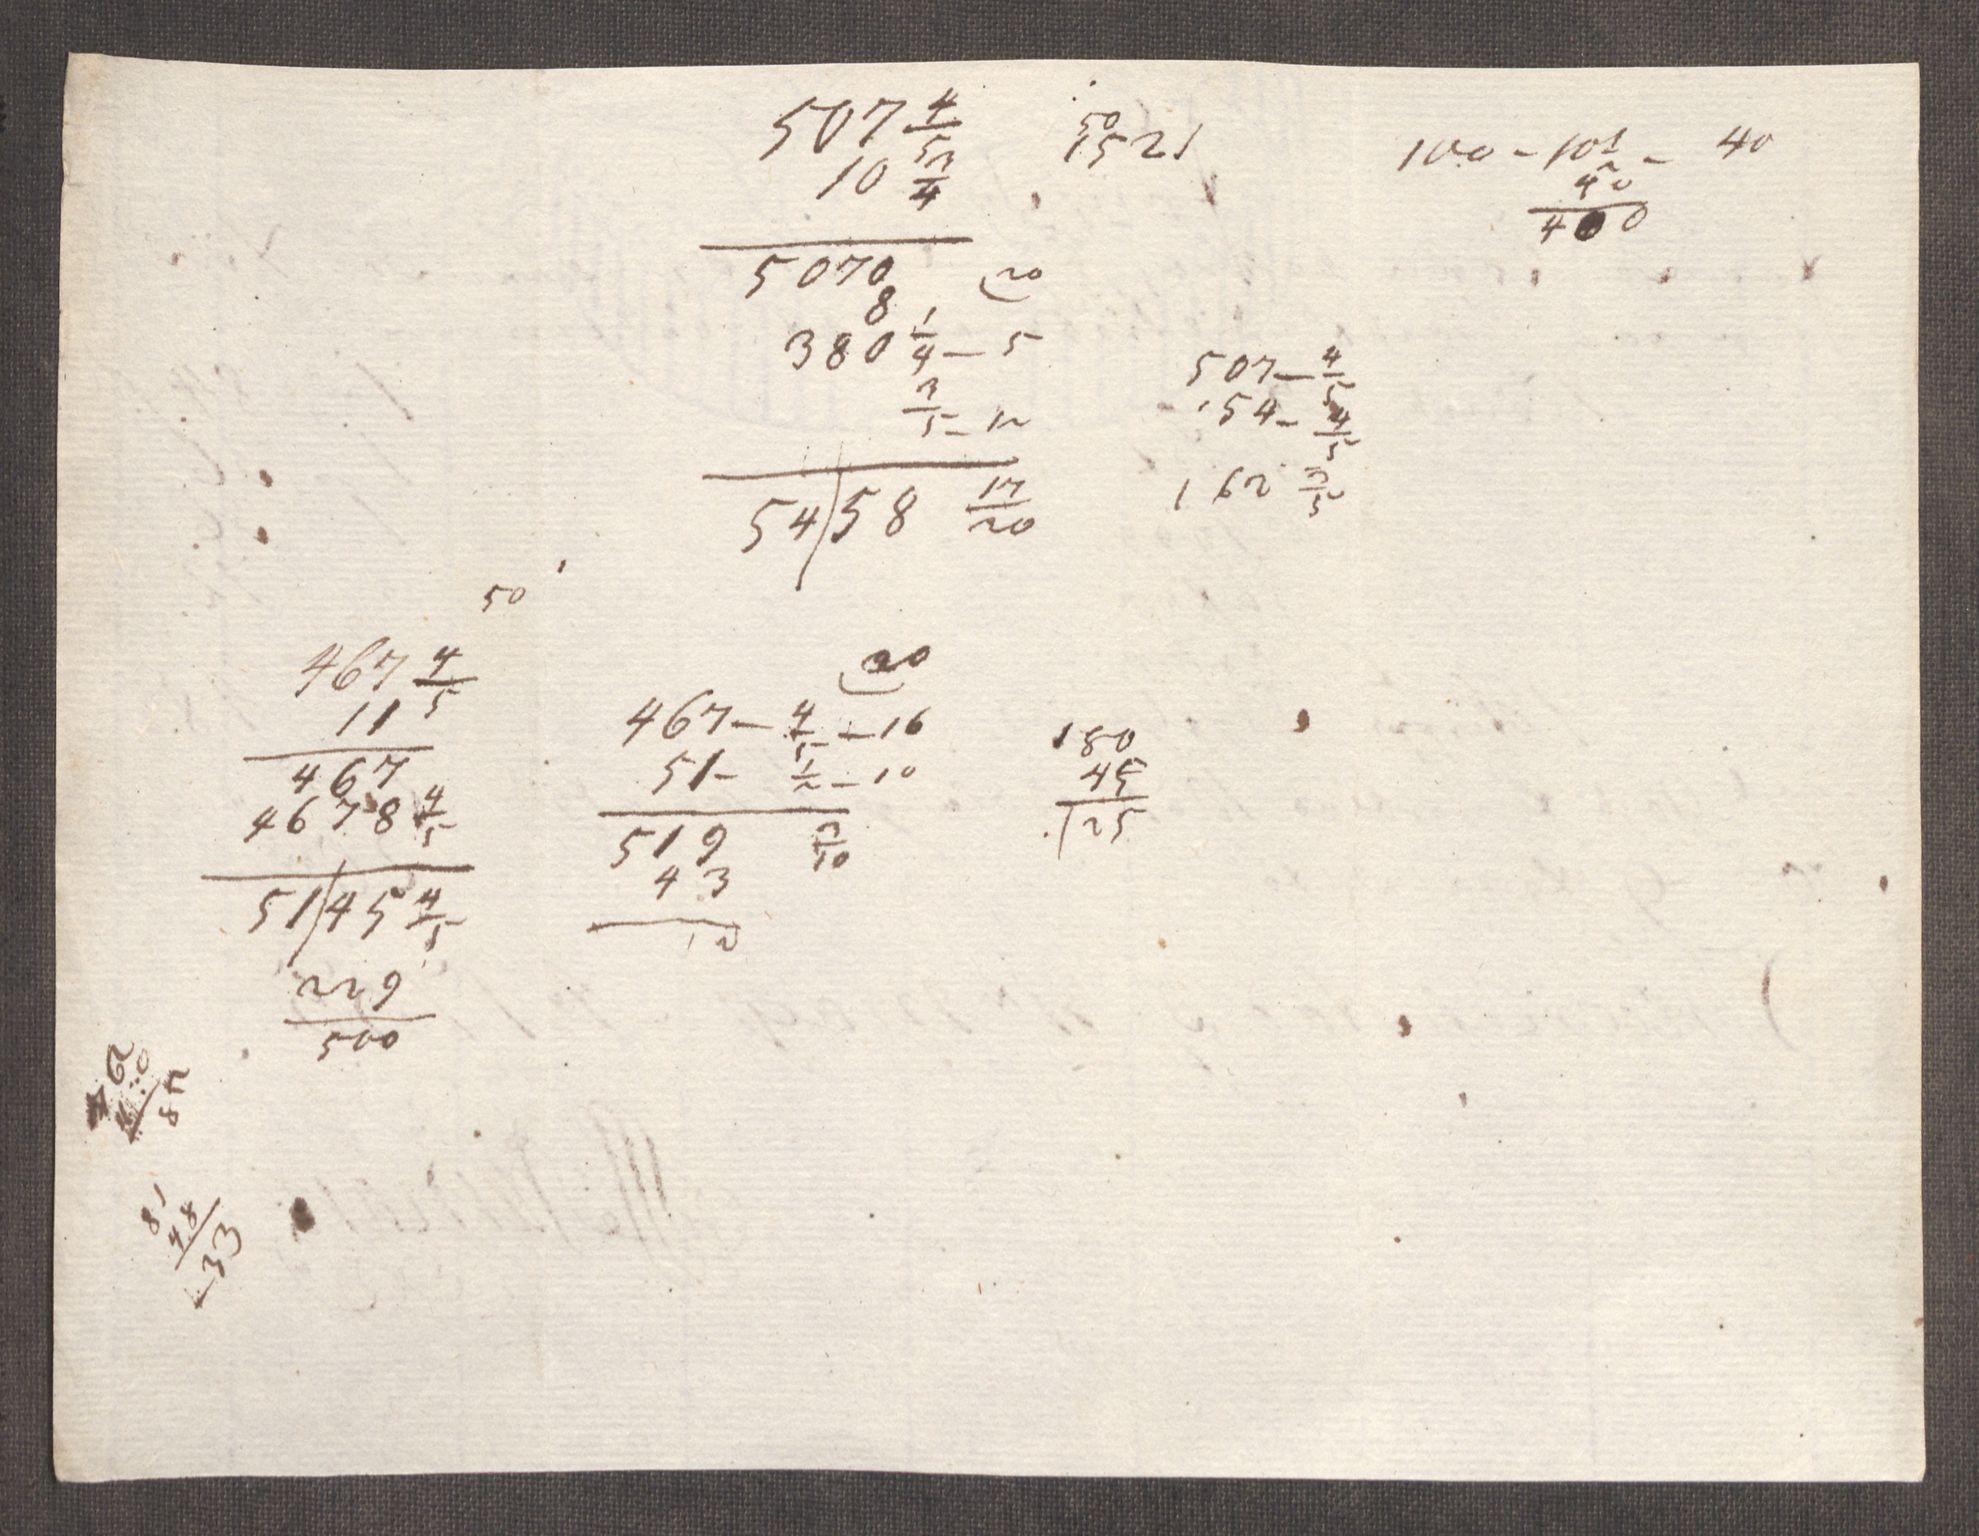 507 4/5
10 3/4
5070 20
8
380 1/4 — 5
3/5 — 12
54/58 17/20
50
1521
100 — 10 1/2 — 40
40
400
507 — 4/5
154 — 4/5
162 3/5
50
467 4/5
11
467
4678 4/5
51/45 4/5
229
500
20
467 — 4/5 — 16
51 — 1/2 — 10
519 3/10
43
12
180
45
125
81
48
33